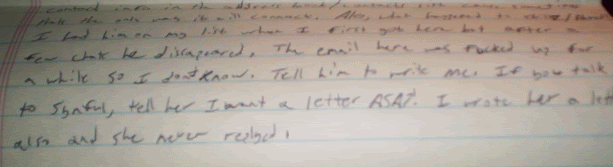 contact info in the address book /
that the only was it will connect. Also, what happened to
I had him on my list when I first got here but after a
few chats he disapeared. The email here was fucked up for
a while so I dont know. Tell him to write me. If you talk
to Synful, tell her I want a letter ASAP. I wrote her a lett
also and she never replyed.